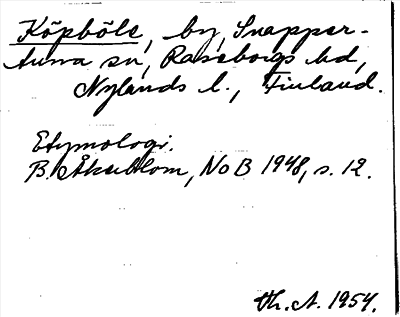 Köpböle, by, Snapper-
tuna sn, Raseborgs hd,
Nylands l., Finland.
Etymologi.
B. Åkerblom, NoB 1948, s. 12.
Th. A. 1954.